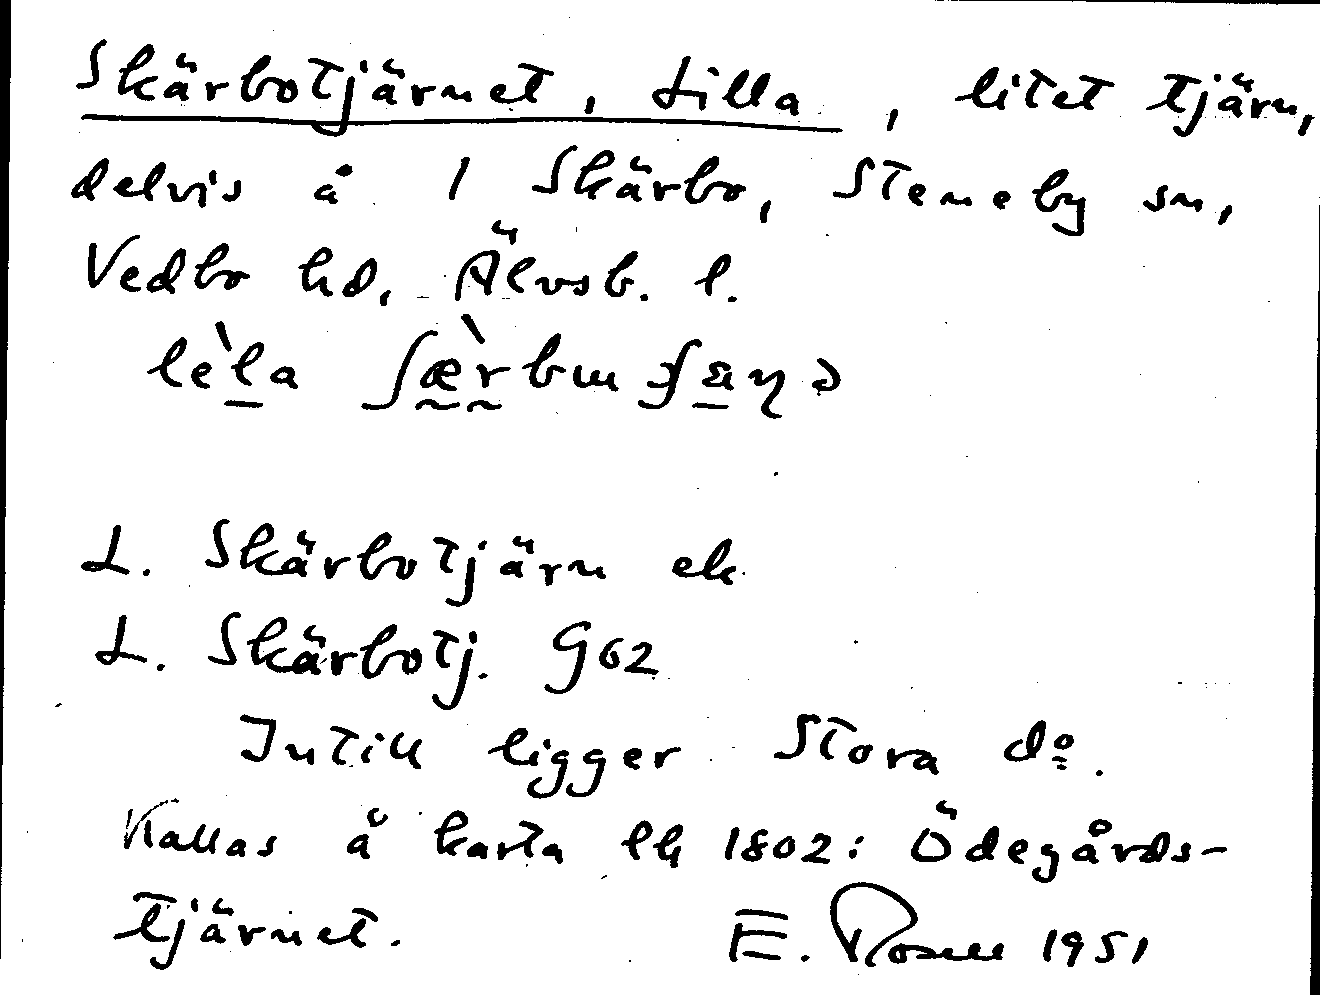 Skärbotjärnet, Lilla, litet tjärn,
delvis å 1 Skärbo, Steneby sn,
Vedbo hd, Älvsb. l.
lèla ʃæ̀rbɯʃæŋə
L. Skärbotjärn ek
L. Skärbotj. G62
Intill ligger Stora do.
Kallas å karta lh 1802: Ödegårds-
tjärnet. E. Rosell 1951